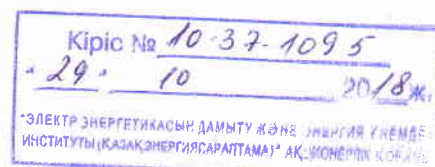 Кіріс № 10-37-1095
"29" 10 2018 ж.
"ЭЛЕКТР ЭНЕРГЕТИКАСЫН ДАМЫТУ ЖӘНЕ ЭНЕРГИЯ ҮНЕМДЕУ
ИНСТИТУТЫ (ҚАЗАҚЭНЕРГИЯСАРАПТАМА)" АКЦИОНЕРЛІК ҚОҒАМЫ